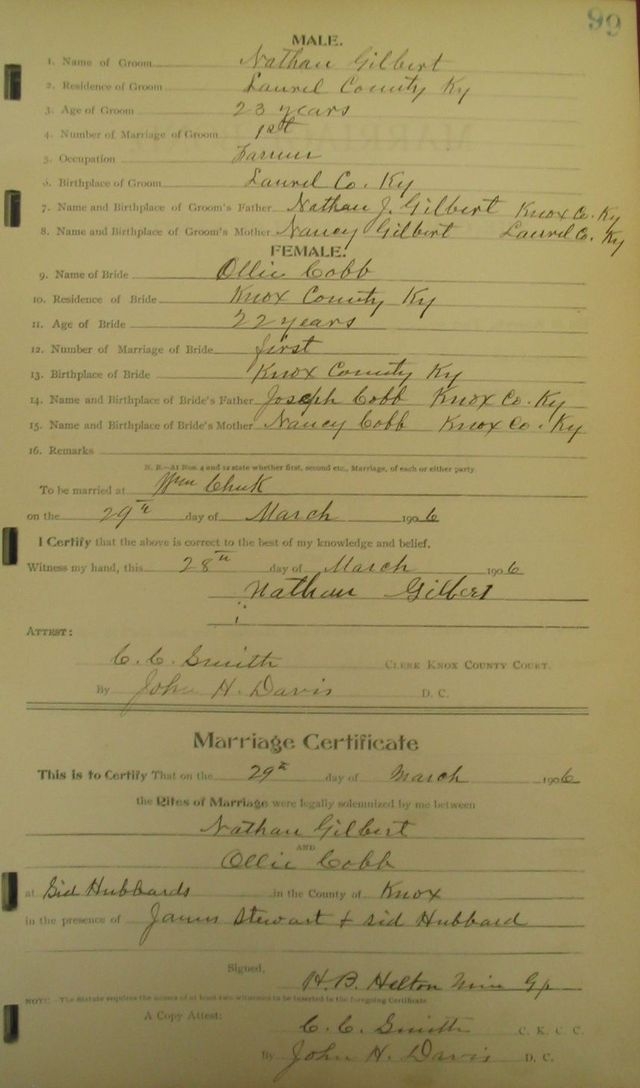 99
MALE.
1. Name of Groom Nathan Gilbert
2. Residence of Groom Laurel County Ky
3. Age of Groom 23 years
4. Number of Marriage of Groom 1st
5. Occupation Farmer
6. Birthplace of Groom Laurel Co. Ky
7. Name and Birthplace of Groom's Father Nathan J. Gilbert Knox Co. Ky
8. Name and Birthplace of Groom's Mother Nancy Gilbert Laurel Co. Ky
FEMALE.
9. Name of Bride Ollie Cobb
10. Residence of Bride Knox County Ky
11. Age of Bride 22 years
12. Number of Marriage of Bride first
13. Birthplace of Bride Knox County Ky
14. Name and Birthplace of Bride's Father Joseph Cobb Knox Co. Ky
15. Name and Birthplace of Bride's Mother Nancy Cobb Knox Co. Ky
16. Remarks
N. B.—At Nos. 4 and 12 state whether first, second etc., Marriage, of each or either party
To be married at Wm
on the 29th day of March 1906
I Certify that the above is correct to the best of my knowledge and belief.
Witness my hand, this 28th day of March 1906
Nathan Gilbert
ATTEST:
C. C. Smith CLERK KNOX COUNTY COURT.
By John H. Davis D. C.
Marriage Certificate
This is to Certify That on the 29th day of March 1906
the Rites of Marriage were legally solemnized by me between
Nathan Gilbert
AND
Ollie Cobb
at Sid Hubbards in the County of Knox
in the presence of James Stewart + Sid Hubbard
Signed, H. B. Helton
NOTE:—The Statute requires the names of at least two witnesses to be inserted in the foregoing Certificate
A Copy Attest: C. C. Smith C. K. C. C.
By John H. Davis D. C.